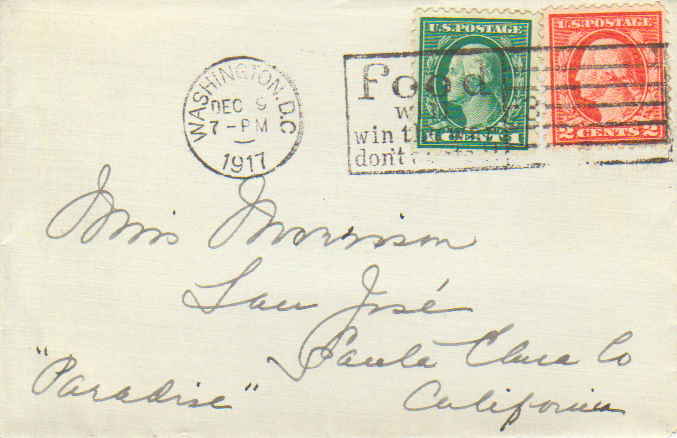 U.S. POSTAGE
U.S. POSTAGE
1 CENT 1
2 CENTS 2
WASHINGTON, D.C.
DEC 9
7-PM
1917
food
win
don't
Miss Morrison
San José
Santa Clara Co
"Paradise"
California